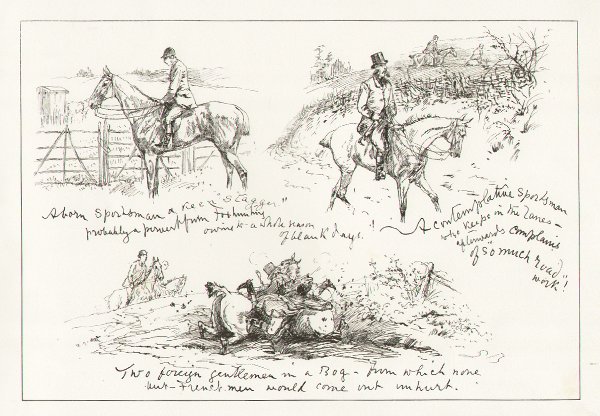 A born Sportsman a keen Stagger"
probably a pervert from Foxhunting
owing to a whole season
of blank days.!
A contemplative Sportsman
who keeps in the lanes –
afterwards complains
of "so much road"
work!
Two foreign gentlemen in a Bog – from which none
but Frenchmen would come out unhurt.